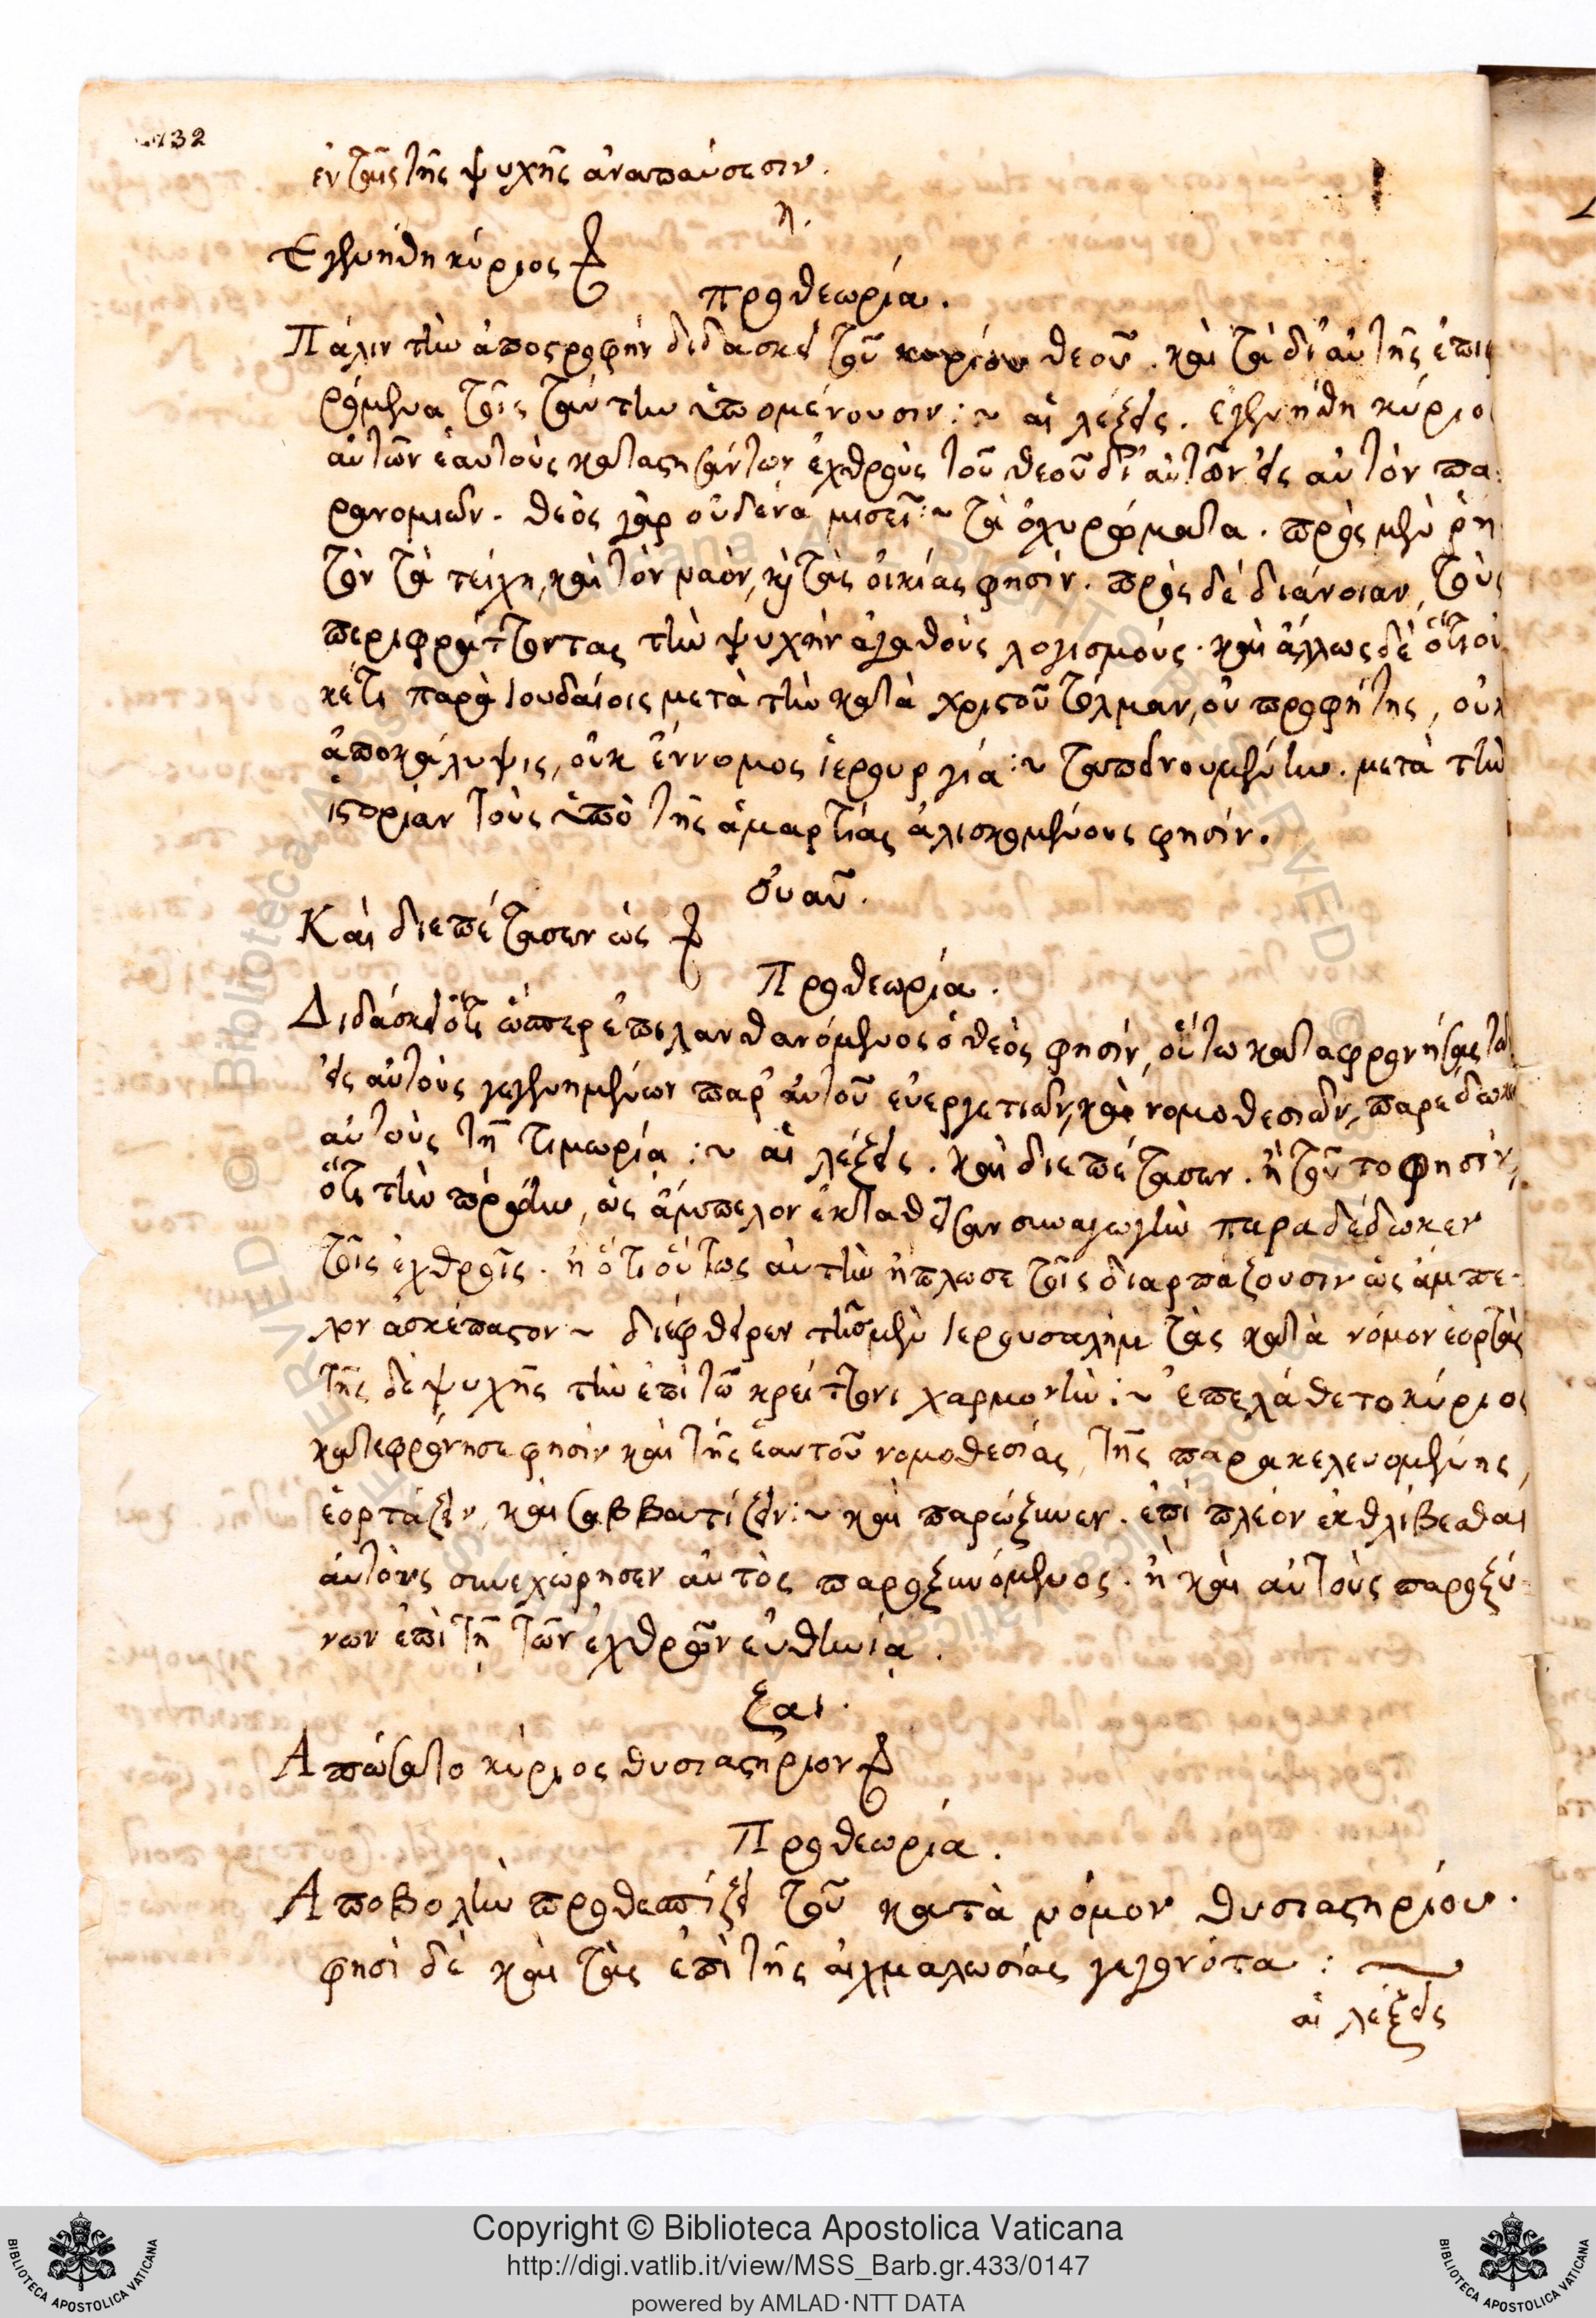 132
ἐν ταῖς τῆς ψυχῆς ἀναπαύσεσιν.
η.
Ἐγενήθη κύριος
προθεωρία.
Πάλιν τὴν ἀποστροφὴν διδάσκει τοῦ κυρίου θεοῦ. καὶ τὰ δι' αὐτῆς ἐπι
ρόμενα τοῖς ταύτην ὑπομένουσιν :~ αἱ λέξεις. ἐγενήθη κύριο
αὐτῶν ἑαυτοὺς καταστησάντων ἐχθροὺς τοῦ θεοῦ δι' αὐτῶν εἰς αὐτὸν πα
ρανομιῶν. θεὸς γὰρ οὐδένα μισεῖ :~ τὰ ὀχυρώματα. πρὸς μὲν ῥη
τὸν τὰ τείχη, καὶ τὸν ναὸν, καὶ τὰς οἰκίας φησίν. πρὸς δὲ διάνοιαν, τοὺς
περιφράττοντας τὴν ψυχὴν ἀγαθοὺς λογισμούς. καὶ ἄλλως δὲ ὅτι οὐ
κέτι παρὰ Ιουδαίοις μετὰ τὴν κατὰ χριστοῦ τόλμαν, οὐ προφήτης, οὐκ
ἀποκάλυψις, οὐκ ἔννομος ἱερουργία :~ ταπεινουμένην. μετὰ τὴν
ἱστορίαν τοὺς ὑπὸ τῆς ἁμαρτίας ἁλισκομένους φησίν.
ὀυαῦ.
Καὶ διεπέτασεν ὡς
Προθεωρία.
Διδάσκει ὅτι ὥσπερ ἐπιλανθανόμενος ὁ θεὸς φησὶν, οὕτω καταφρονήσας τῶν
εἰς αὐτοὺς γεγενημένων παρ' αὐτοῦ εὐεργετιῶν, καὶ νομοθεσιῶν, παρέδωκεν
αὐτοὺς τῇ τιμωρίᾳ :~ αἱ λέξεις. καὶ διεπέτασεν. ἢ τοῦτο φησὶν,
ὅτι τὴν πρώτην, ὡς ἄμπελον ἐκταθεῖσαν συναγωγὴν παραδέδωκεν
τοῖς ἐχθροῖς. ἢ ὅτι οὕτως αὐτὴν ἥπλωσε τοῖς διαρπάζουσιν ὡς ἄμπε-
λον ἀσκέπαστον ~ διέφθειρεν τῆς μὲν Ιερουσαλὴμ τὰς κατὰ νόμον ἑορτὰς
τῆς δὲ ψυχῆς τὴν ἐπὶ τῷ κρείττονι χαρμονὴν :~ ἐπελάθετο κύριος
κατεφρόνησε φησὶν καὶ τῆς ἑαυτοῦ νομοθεσίας, τῆς παρακελευομένης,
ἑορτάζειν, καὶ σαββατίζειν :~ καὶ παρώξυνεν. ἐπὶ πλέον ἐκθλίβεσθαι
αὐτοὺς συνεχώρησεν αὐτὸς παροξυνόμενος. ἢ καὶ αὐτοὺς παροξύ-
νων ἐπὶ τῇ τῶν ἐχθρῶν εὐθηνίᾳ.
ζαι.
Ἀπώσατο κύριος θυσιαστήριον
Προθεωρία.
Ἀποβολὴν προθεσπίζει τοῦ κατὰ νόμον θυσιαστηρίου.
φησὶ δὲ καὶ τὰς ἐπὶ τῆς αἰχμαλωσίας γεγονότα :~
αἱ λέξεις
Copyright © Biblioteca Apostolica Vaticana
http://digi.vatlib.it/view/MSS_Barb.gr.433/0147
powered by AMLAD·NTT DATA